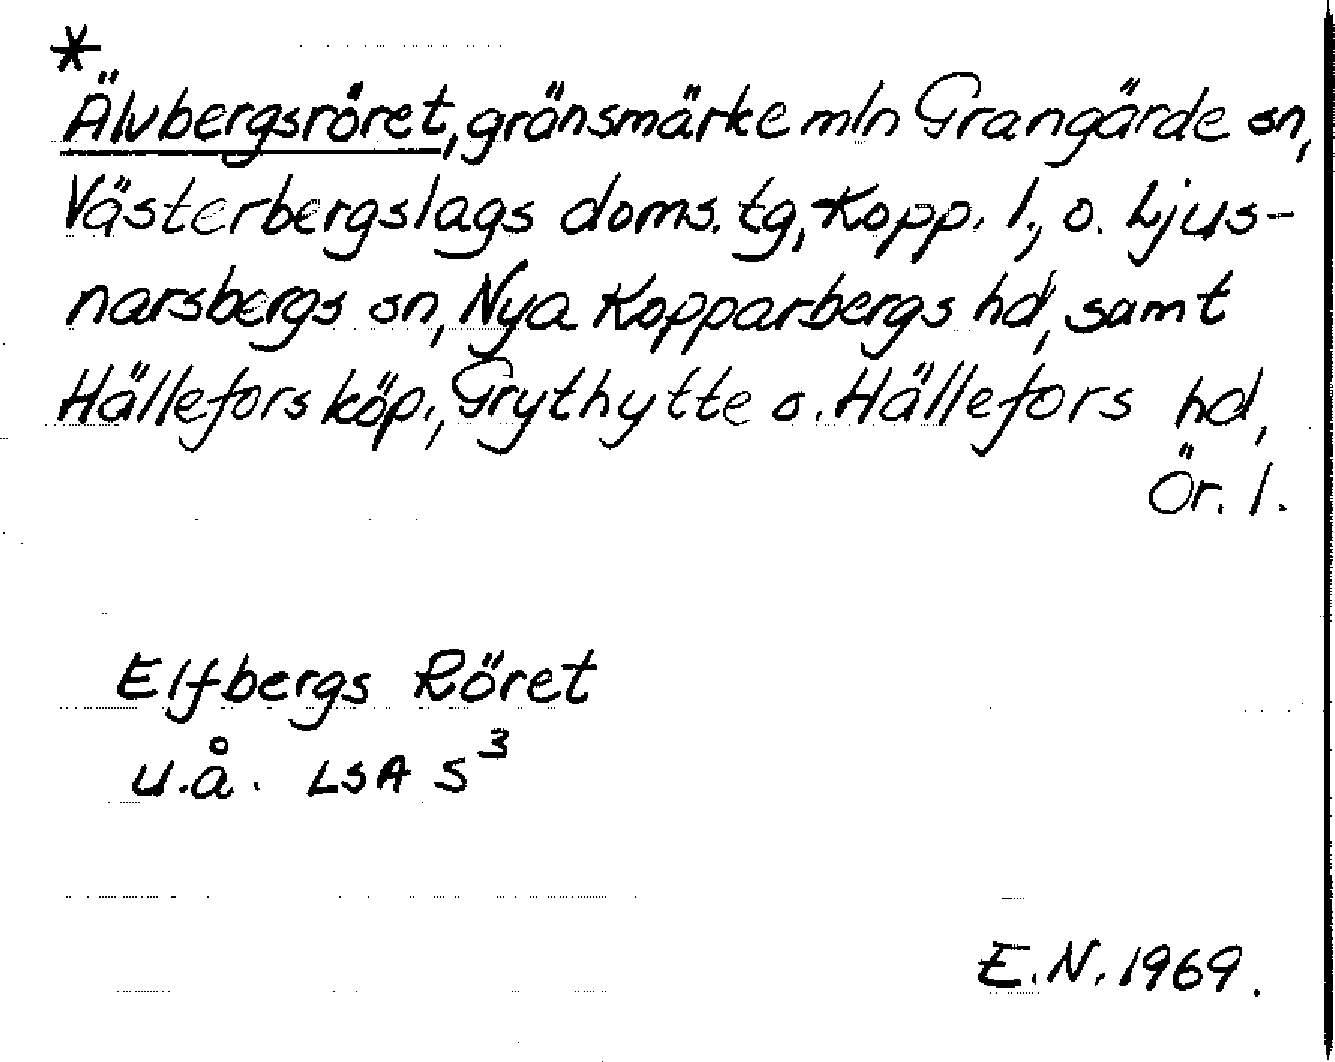 *
Älvbergsröret, gränsmärke mln Grangärde sn,
Västerbergslags doms. tg, Kopp. l., o. Ljus-
narsbergs sn, Nya Kopparbergs hd, samt
Hällefors köp., Grythytte o. Hällefors hd,
Ör. l.
Elfbergs Röret
u.å. LSA S³
E.N. 1969.